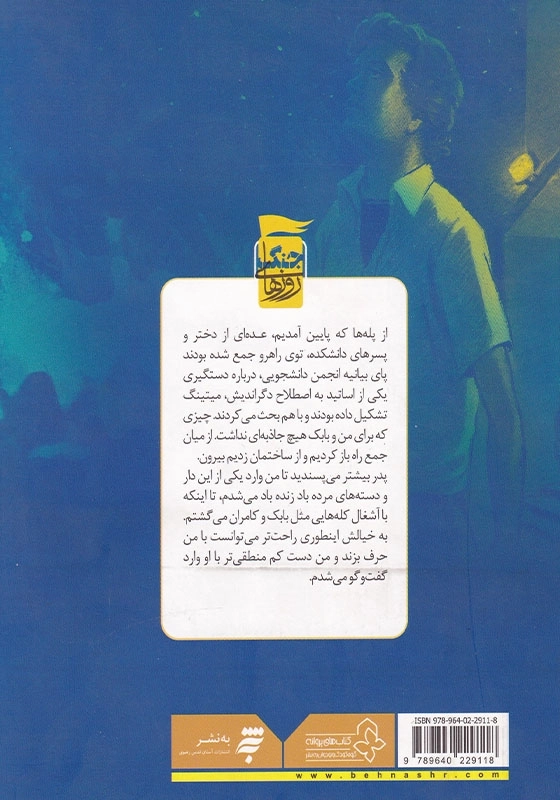 روزهای
جنگی
از پله‌ها که پایین آمدیم، عده‌ای از دختر و
پسرهای دانشکده، توی راهرو جمع شده بودند
پای بیانیه انجمن دانشجویی، درباره دستگیری
یکی از اساتید به اصطلاح دگراندیش، میتینگ
تشکیل داده بودند و با هم بحث می‌کردند. چیزی
که برای من و بابک هیچ جاذبه‌ای نداشت. از میان
جمع راه باز کردیم و از ساختمان زدیم بیرون.
پدر بیشتر می‌پسندید تا من وارد یکی از این دار
و دسته‌های مرده باد زنده باد می‌شدم، تا اینکه
با آشغال کله‌هایی مثل بابک و کامران می‌گشتم.
به خیالش اینطوری راحت‌تر می‌توانست با من
حرف بزند و من دست کم منطقی‌تر با او وارد
گفت‌وگو می‌شدم.
به‌نشر
انتشارات آستان قدس رضوی
کتاب‌های پروانه
ISBN 978-964-02-2911-8
9 789640 229118
www.behnashr.com